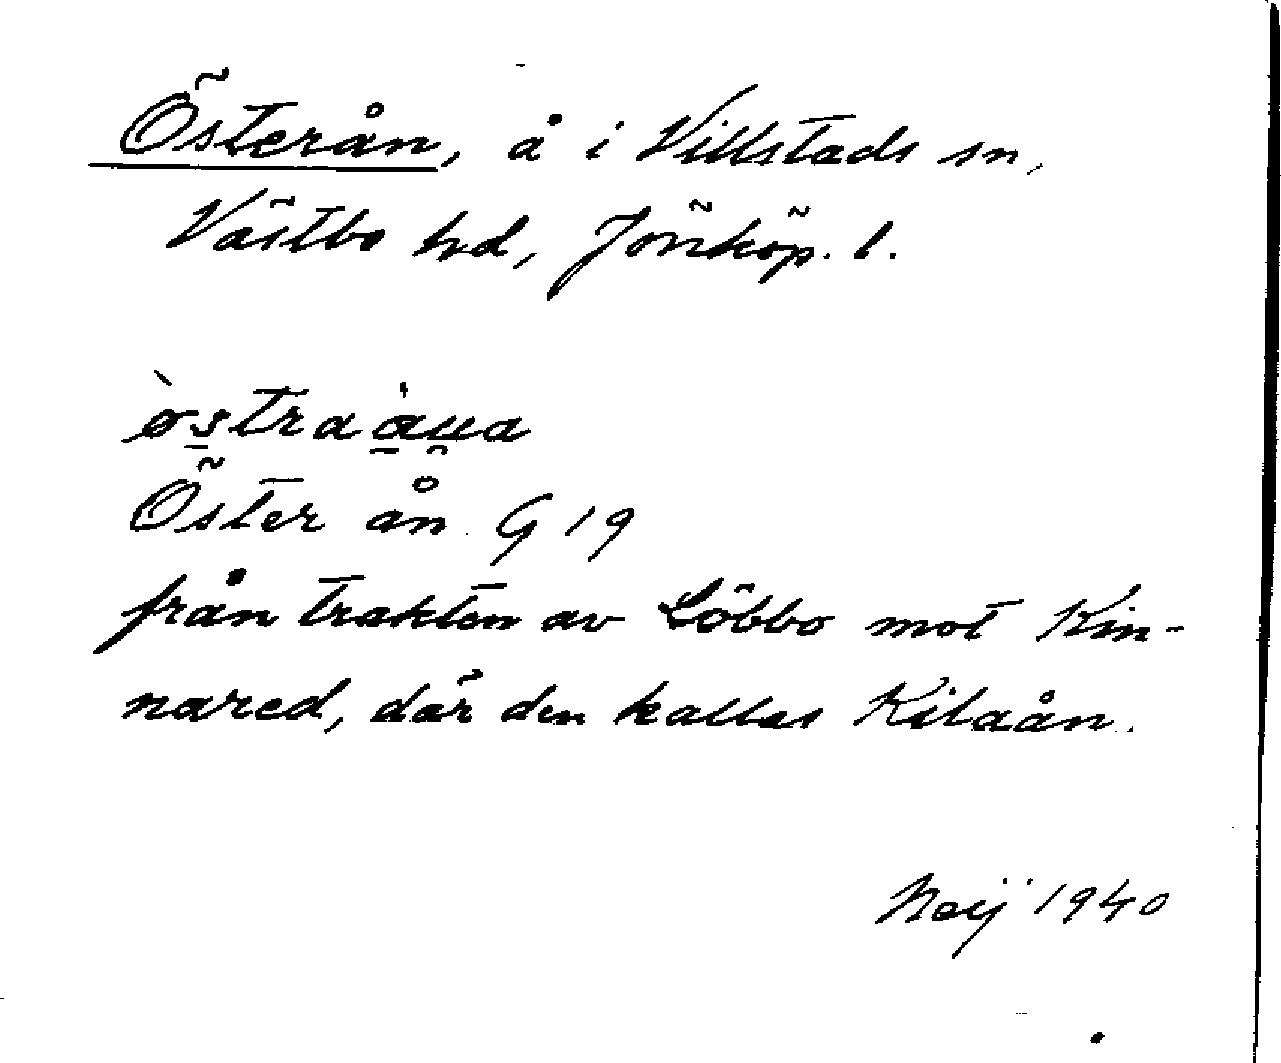 Österån, å i Villstads sn,
Västbo hd, Jönköp. l.
Öster ån G 19
från trakten av Löbbo mot Kin-
nared, där den kallas Kilaån.
1940